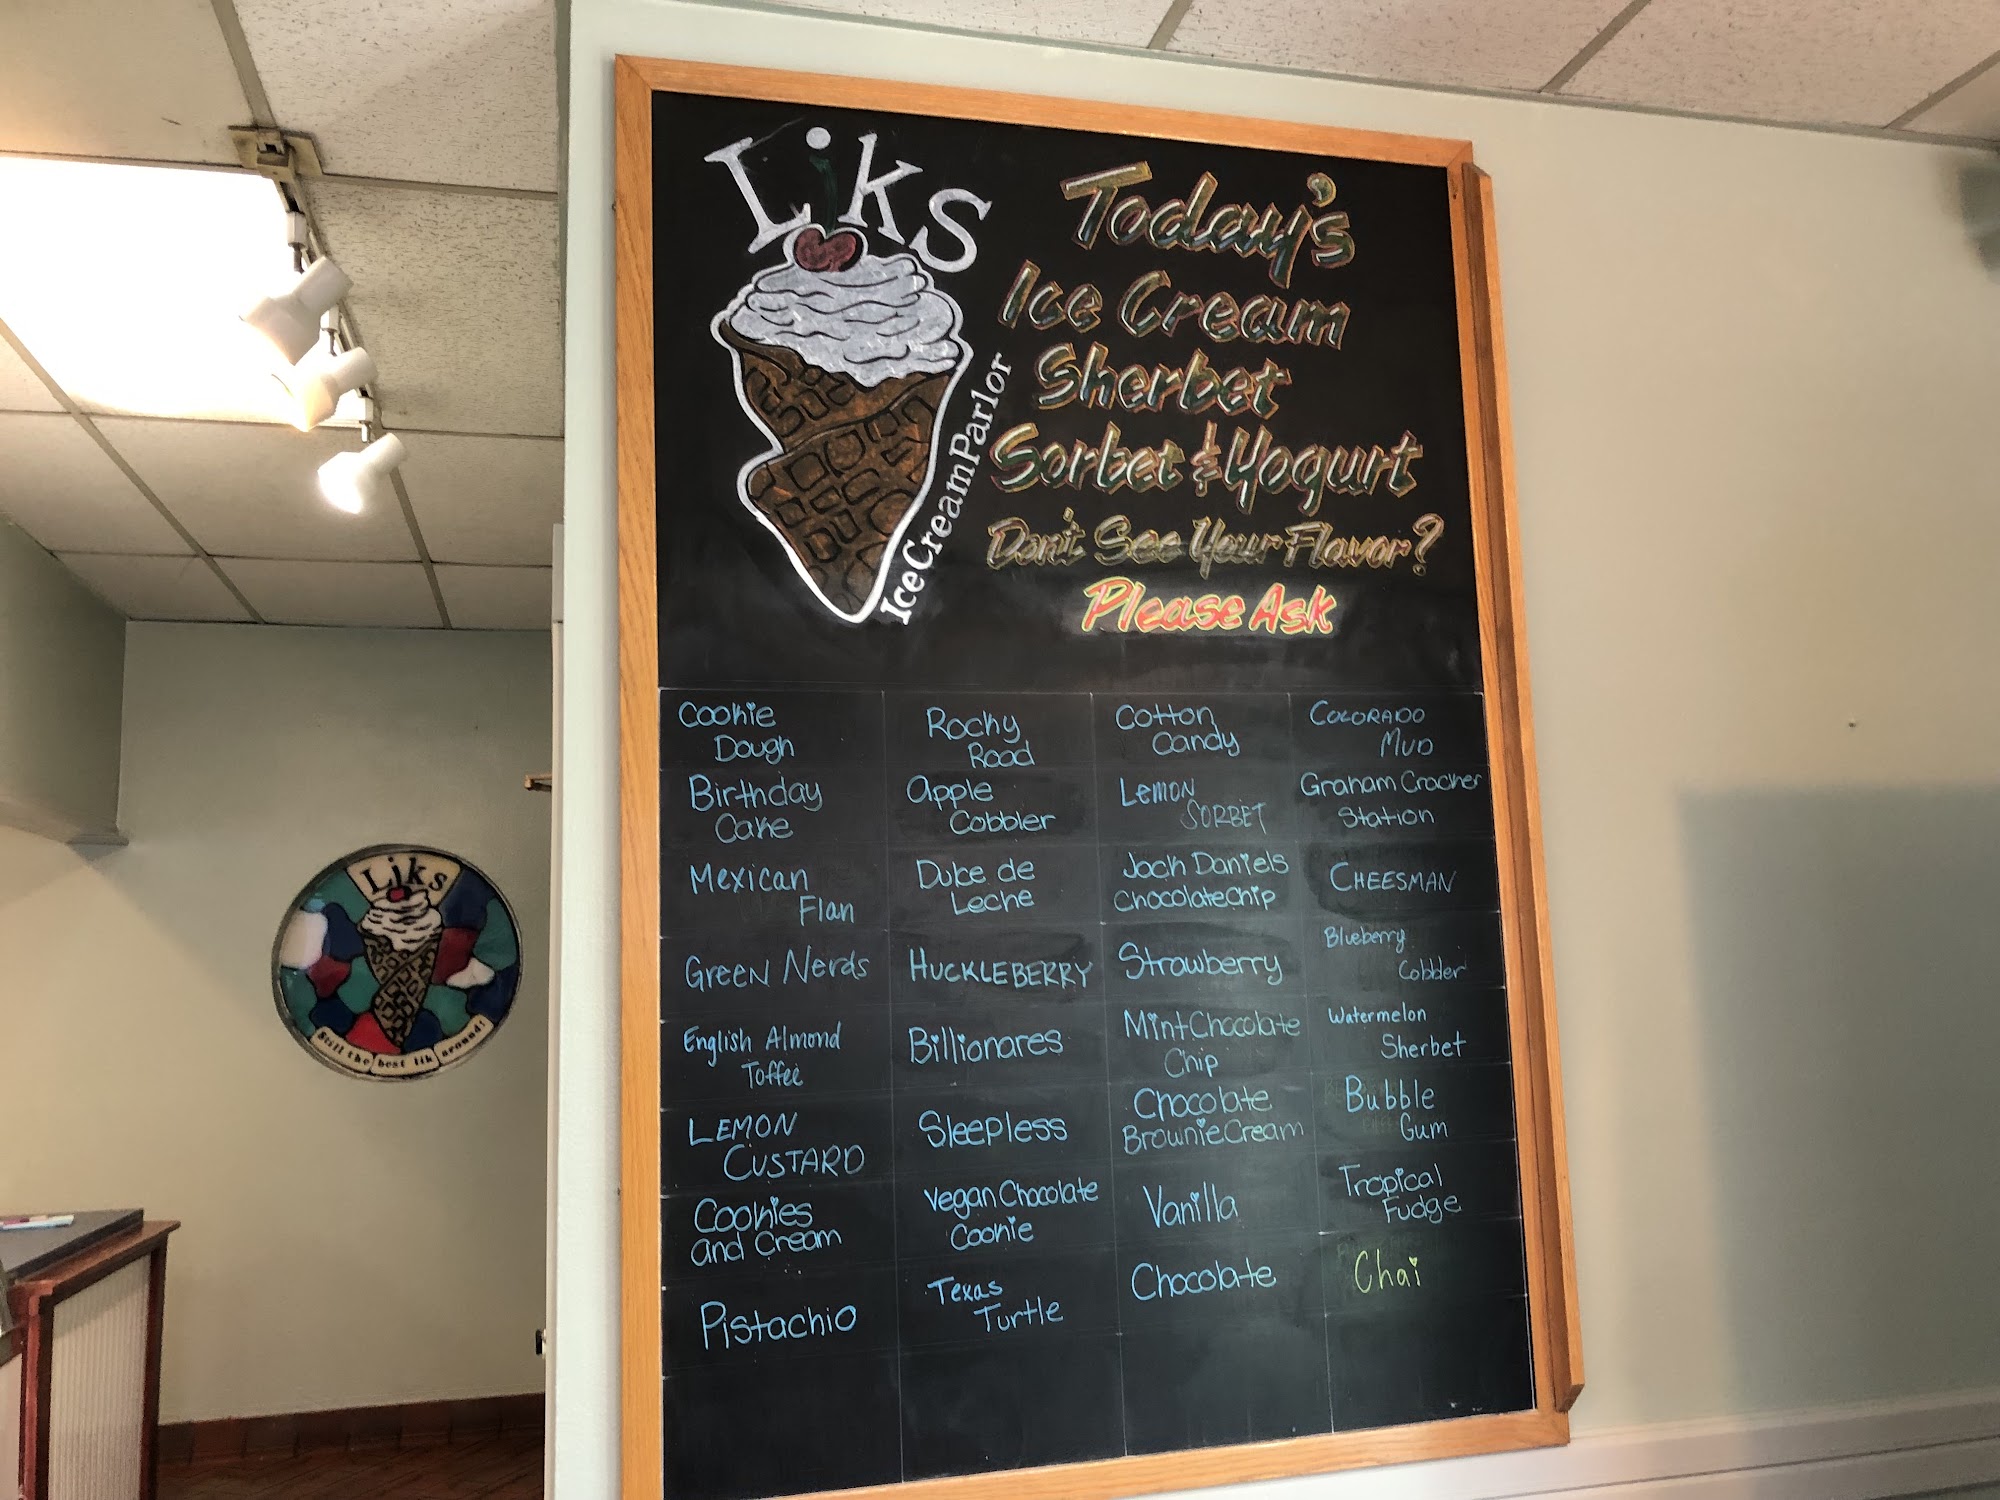 Liks
Ice Cream Parlor
Today's
Ice Cream
Sherbet
Sorbet & Yogurt
Don't See Your Flavor?
Please Ask
Cookie
Dough
Birthday
Cake
Mexican
Flan
Green Nerds
English Almond
Toffee
LEMON
CUSTARD
Cookies
and Cream
Pistachio
Rocky
Road
Apple
Cobbler
Dulce de
Leche
HUCKLEBERRY
Billionares
Sleepless
Vegan Chocolate
Cookie
Texas
Turtle
Cotton
Candy
LEMON
SORBET
Jack Daniels
Chocolate Chip
Strawberry
Mint Chocolate
Chip
Chocolate
Brownie Cream
Vanilla
Chocolate
COLORADO
MUD
Graham Cracker
Station
CHEESMAN
Blueberry
Cobbler
Watermelon
Sherbet
Bubble
Gum
Tropical
Fudge
Chai
Liks
Still the best lik around!